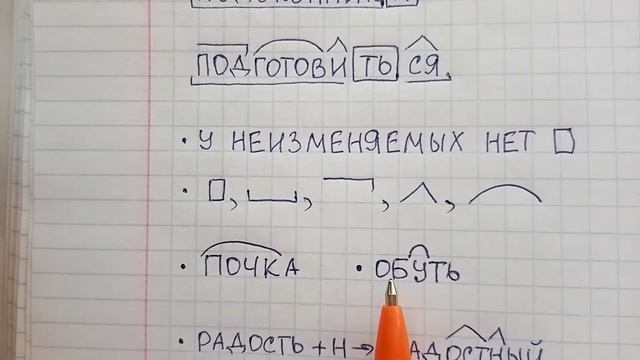 ПОДГОТОВИТЬСЯ
• У НЕИЗМЕНЯЕМЫХ НЕТ
• ПОЧКА • ОБУТЬ
• РАДОСТЬ + Н →